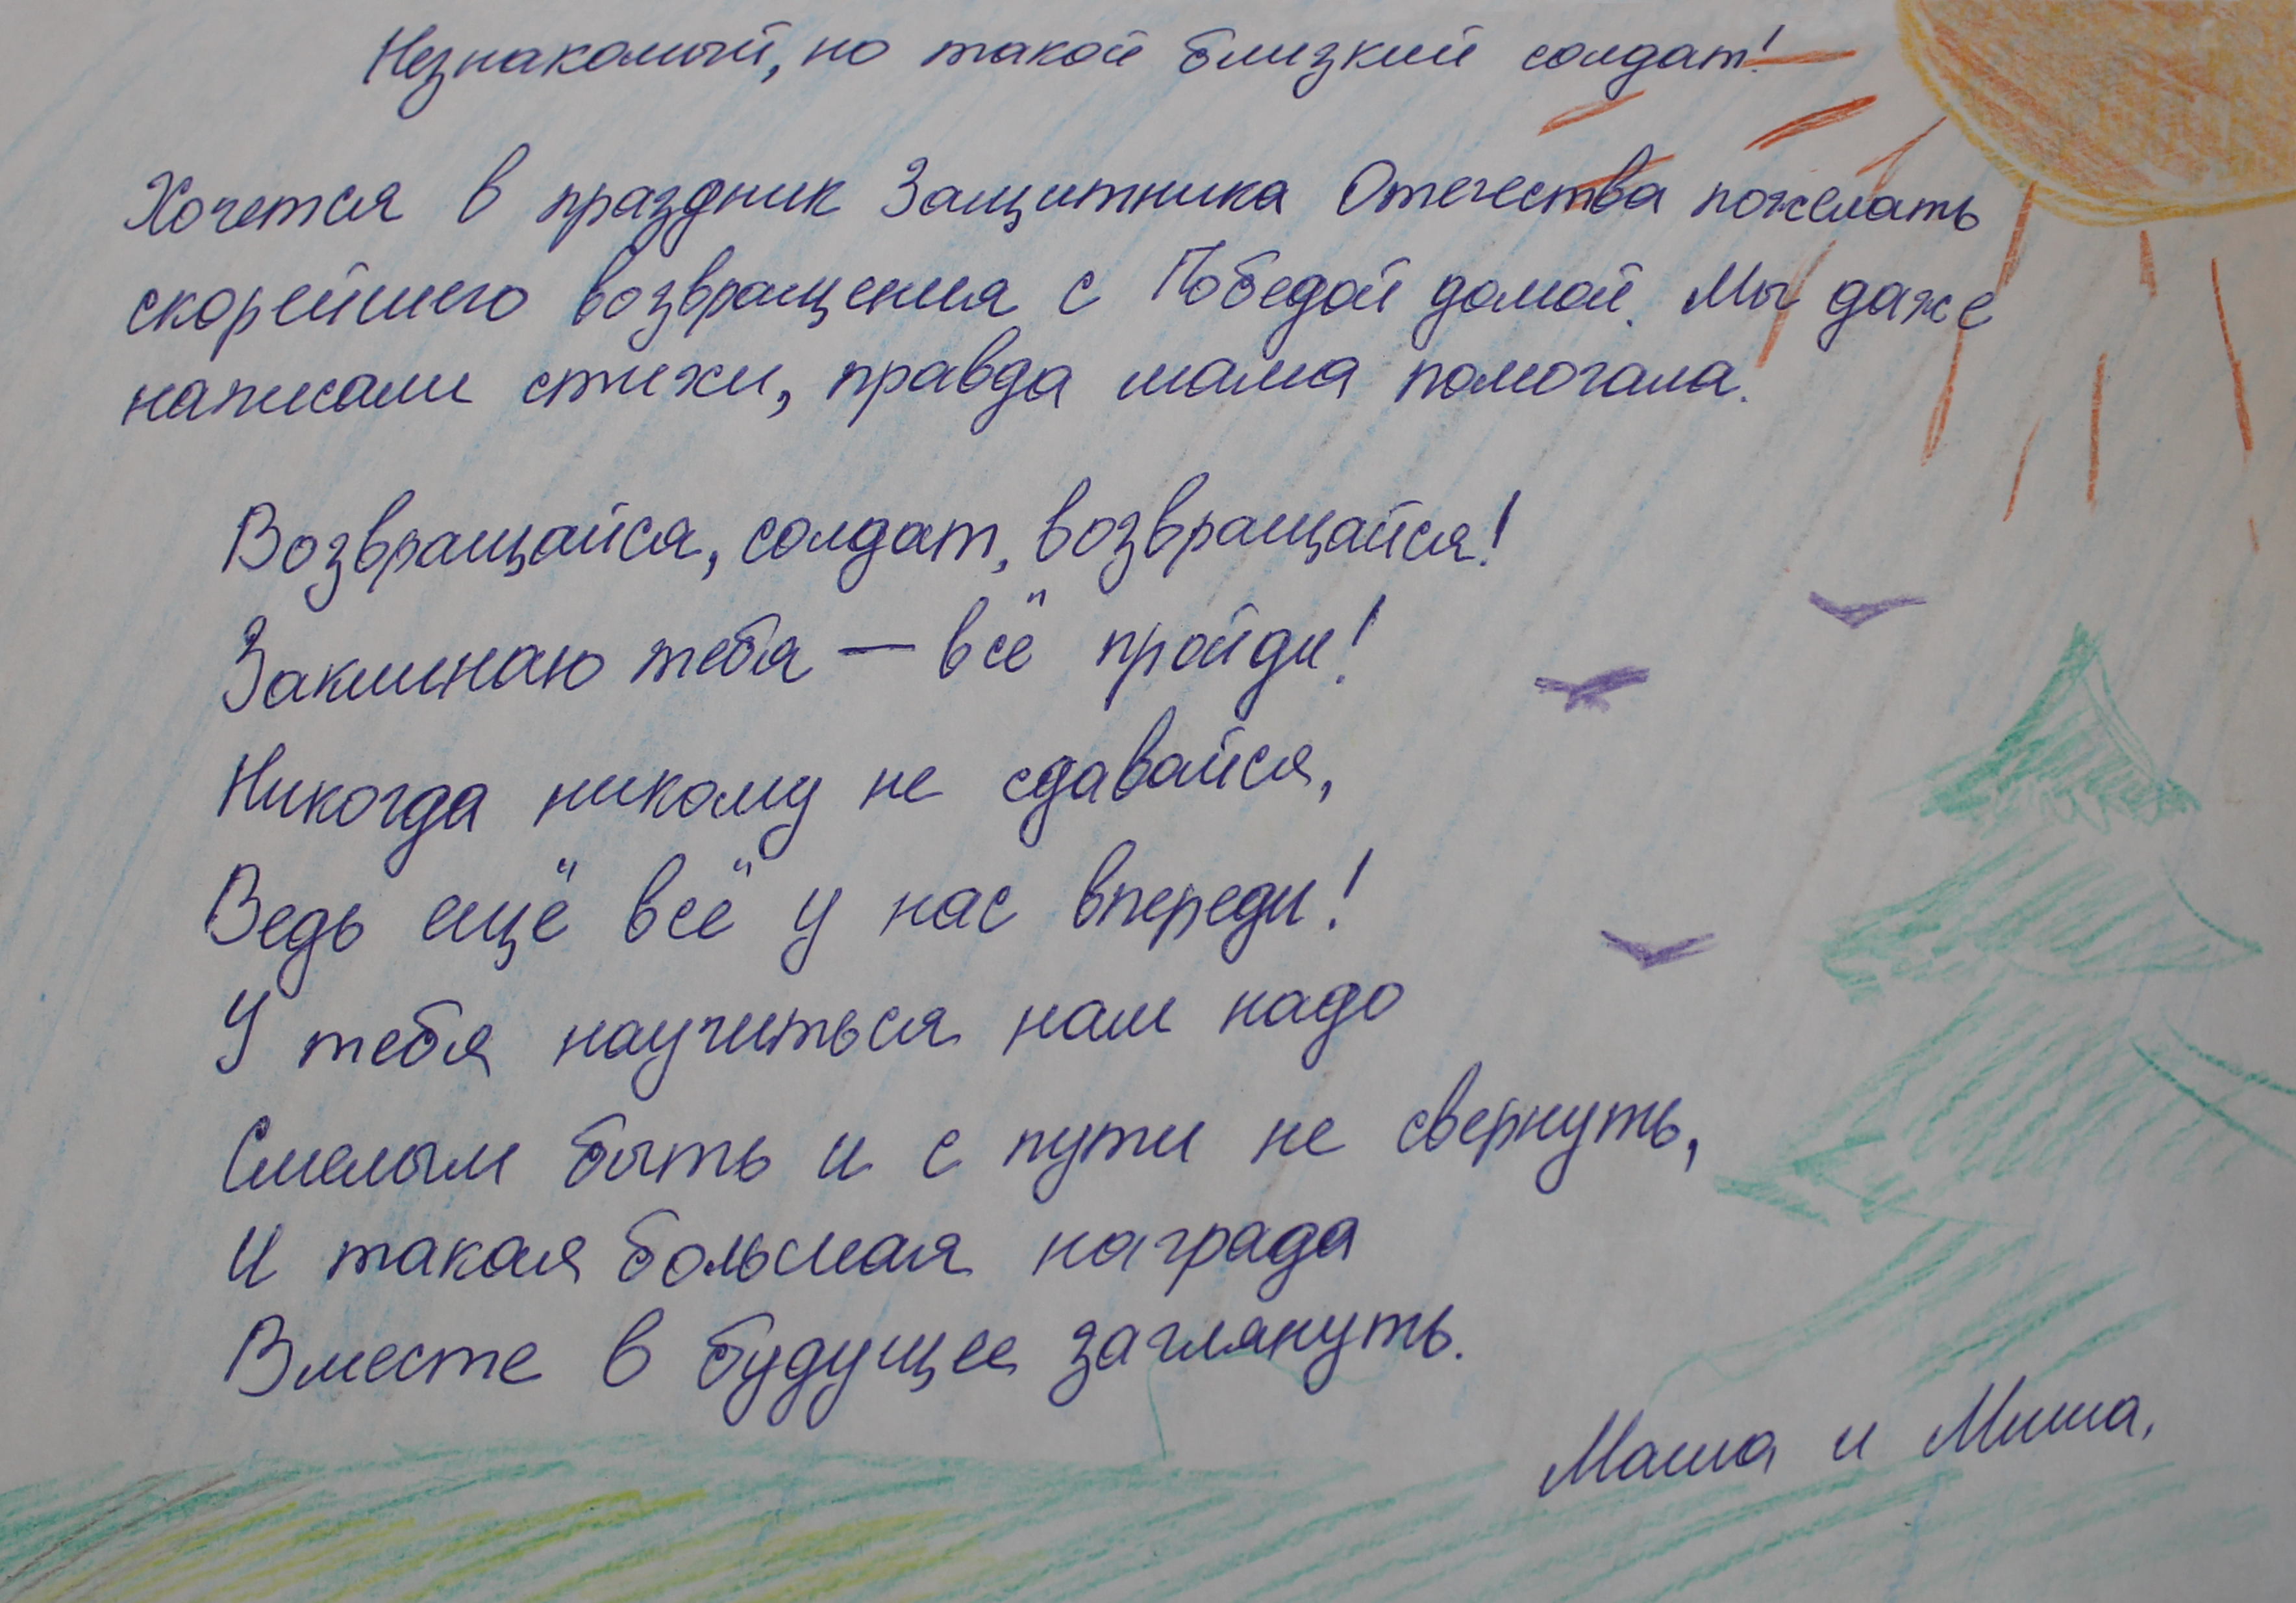 Незнакомый, но такой близкий солдат!
Хочется в праздник Защитника Отечества пожелать
скорейшего возвращения с Победой домой. Мы даже
написали стихи, правда мама помогала.
Возвращайся, солдат, возвращайся!
Заклинаю тебя — всё пройди!
Никогда никому не сдавайся,
Ведь ещё всё у нас впереди!
У тебя научиться нам надо
Смелым быть и с пути не свернуть,
И такая большая награда
Вместе в будущее заглянуть.
Маша и Миша.